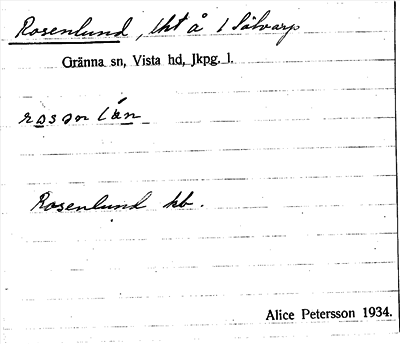 Rosenlund, lht å 1 Sålvarp
Gränna sn, Vista hd, Jkpg. l.
Rosenlund hb.
Alice Petersson 1934.